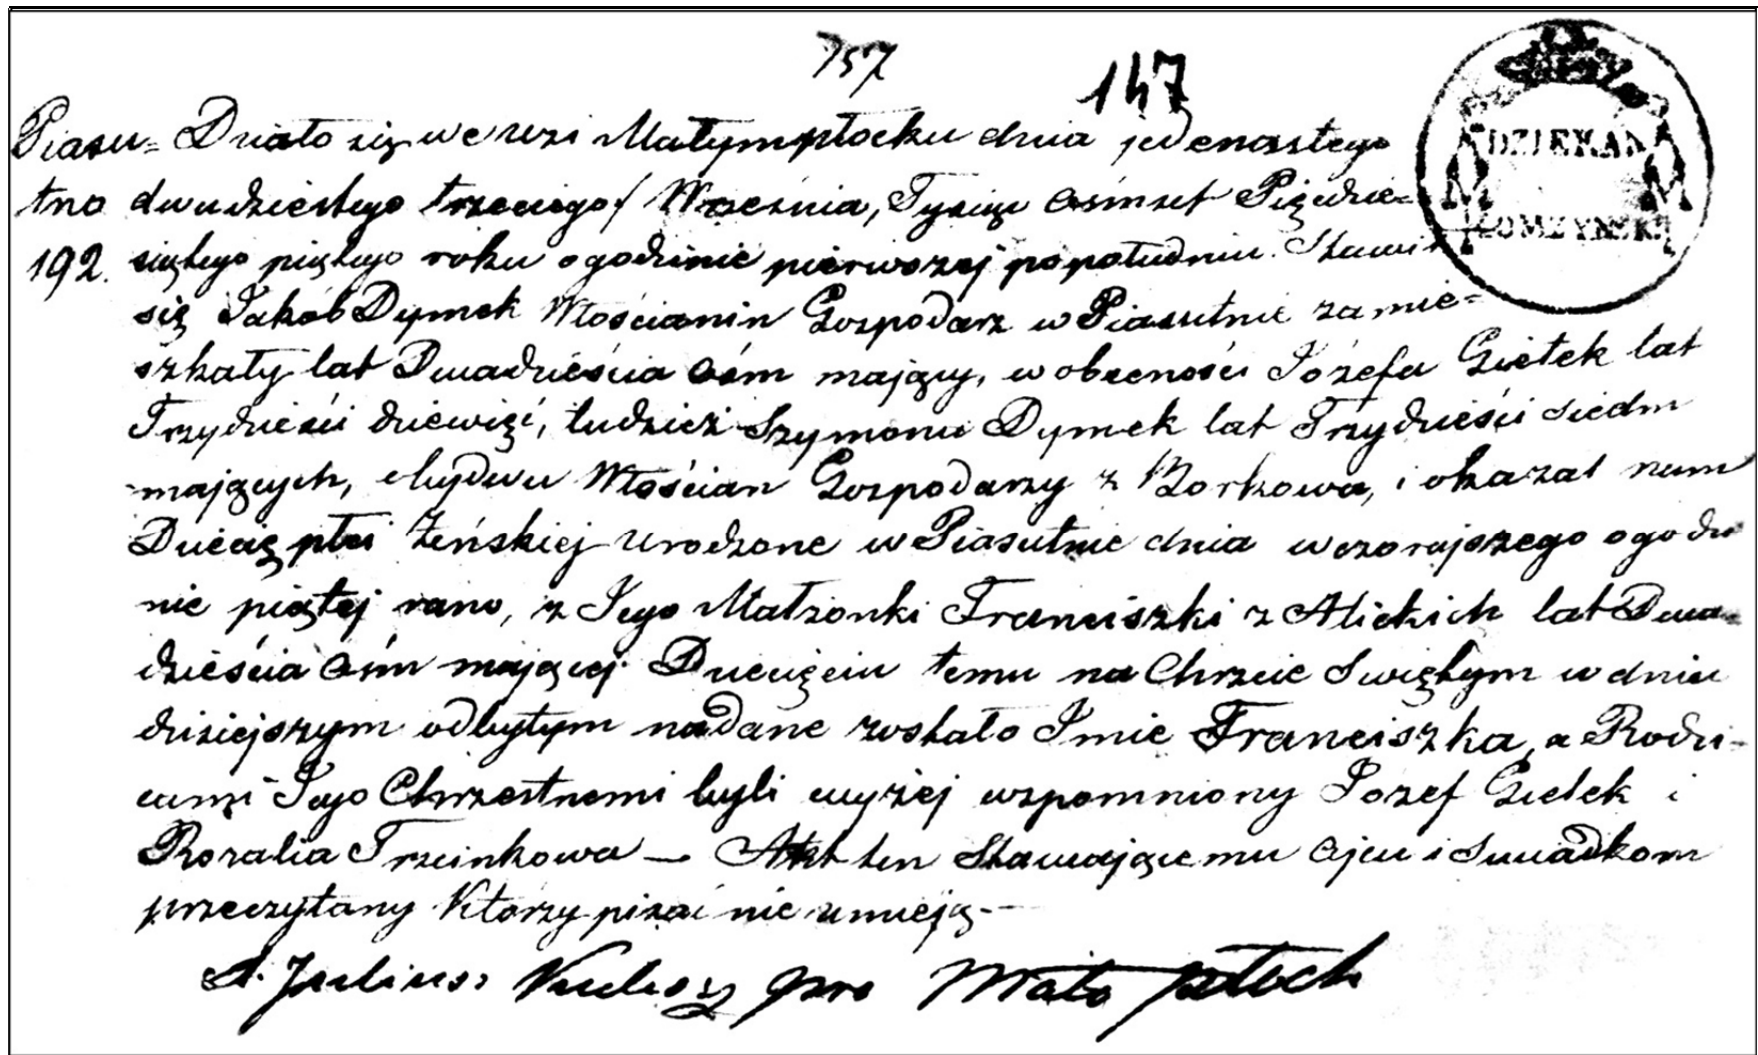 757
147
DZIEKAN
ŁOMŻYŃSKI
Piasu=
tno
192.
Działo się we wsi Małympłocku dnia jedenastego
dwudziestego trzeciego / Września, Tysiąc ośmset Pięćdzie=
siątego piątego roku o godzinie pierwszej popołudniu. Stawił
się Jakób Dymek Włościanin Gospodarz w Piasutnie zamie=
szkały lat Dwadzieścia ośm mający, w obecności Józefa Gietek lat
Trzydzieści dziewięć, tudzież Szymona Dymek lat Trzydzieści siedm
mających, obydwu Włościan Gospodarzy z Borkowa, i okazał nam
Dziecię płci Żeńskiej urodzone w Piasutnie dnia wczorajszego o godzi
nie piątej rano, z Jego Małżonki Franciszki z Alickich lat Dwa=
dzieścia ośm mającej. Dziecięciu temu na Chrzcie Swiętym w dniu
dzisiejszym odbytym nadane zostało Imie Franciszka, a Rodzi-
cami Jego Chrzestnemi byli wyżej wspomniony Józef Gietek i
Rozalia Trzcinkowa — Akt ten Stawającemu Ojcu i Swiadkom
przeczytany Którzy pisać nie umieją.—
X. Juliusz pro Mało płock